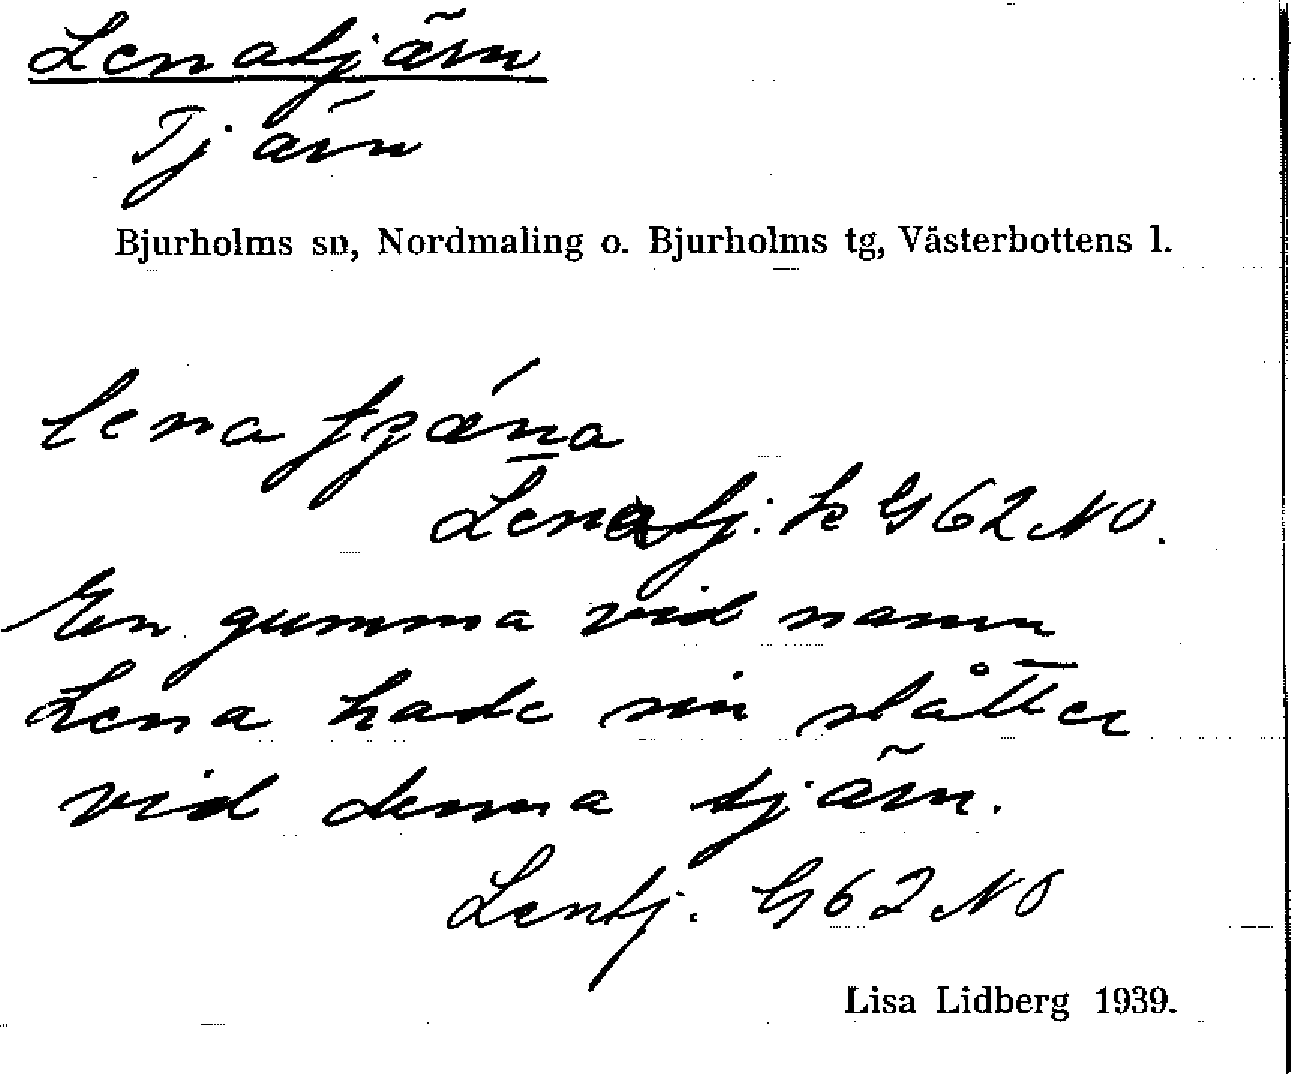 Lenatjärn
Tjärn
Bjurholms sn, Nordmaling o. Bjurholms tg, Västerbottens l.
Lenatj: k G62 NO.
En gumma vid namn
Lena hade sin slåtter
vid denna tjärn.
Lentj. G62 NO
Lisa Lidberg 1939.